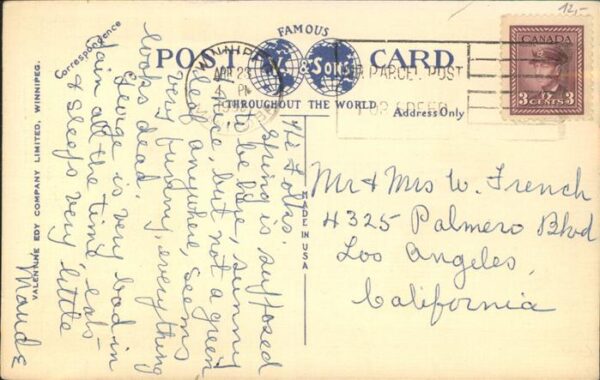 12,-
Correspondence
FAMOUS
POST CARD
& SONS
THROUGHOUT THE WORLD
Address Only
WINNIPEG
APR 23
PM
AIR PARCEL POST
FOR SPEED
CANADA
3 CENTS 3
VALENTINE EDY COMPANY LIMITED, WINNIPEG.
MADE IN USA
Hi Folks.
Spring is supposed
to be here, sunny
& nice, but not a green
leaf anywhere, seems
very funny, everything
looks dead.
George is very bad in
pain all the time, eats
& sleeps very little
Maude
Mr & Mrs W. French
4325 Palmero Blvd
Los Angeles,
California